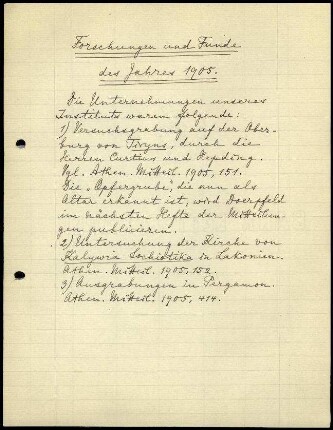 Forschungen und Funde
des Jahres 1905.
Die Unternehmungen unseres
Instituts waren folgende:
1) Versuchsgrabung auf der Ober-
burg von Tiryns, durch die
Herren Curtius und Hepding.
Vgl. Athen. Mitteil. 1905, 151.
Die „Opfergrube", die nun als
Altar erkannt ist, wird Doerpfeld
im nächsten Hefte der Mitteilun-
gen publicieren.
2) Untersuchung der Kirche von
Kalywia Sochiotika in Lakonien.
Athen. Mitteil. 1905, 152.
3) Ausgrabungen in Pergamon.
Athen. Mitteil. 1905, 414.